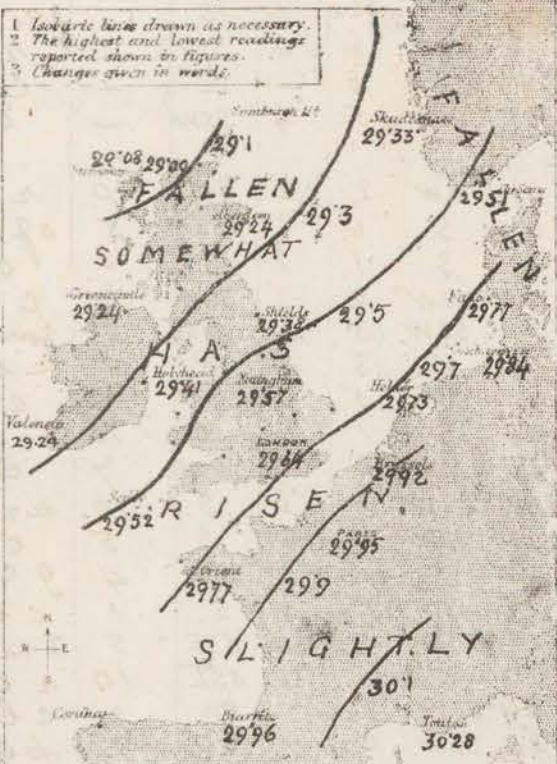 1 Isobaric lines drawn as necessary.
2 The highest and lowest readings
reported shown in figures.
3 Changes given in words.
Sumburgh Hd
Skudesnaes
29.33
FALLEN
29.08
29.00
29.1
FALLEN
29.51
Aberdeen
29.24
29.3
SOMEWHAT
Greencastle
29.24
Shields
29.38
29.5
Fano
29.77
HAS
Holyhead
29.41
Nottingham
29.57
29.7
29.84
Helder
29.73
Valencia
29.24
LONDON
29.64
Brussels
29.92
Scilly
29.52
RISEN
PARIS
29.95
L'Orient
29.77
29.9
N
W E
S
SLIGHTLY
30.1
Corunna
Biarritz
29.96
Toulon
30.28